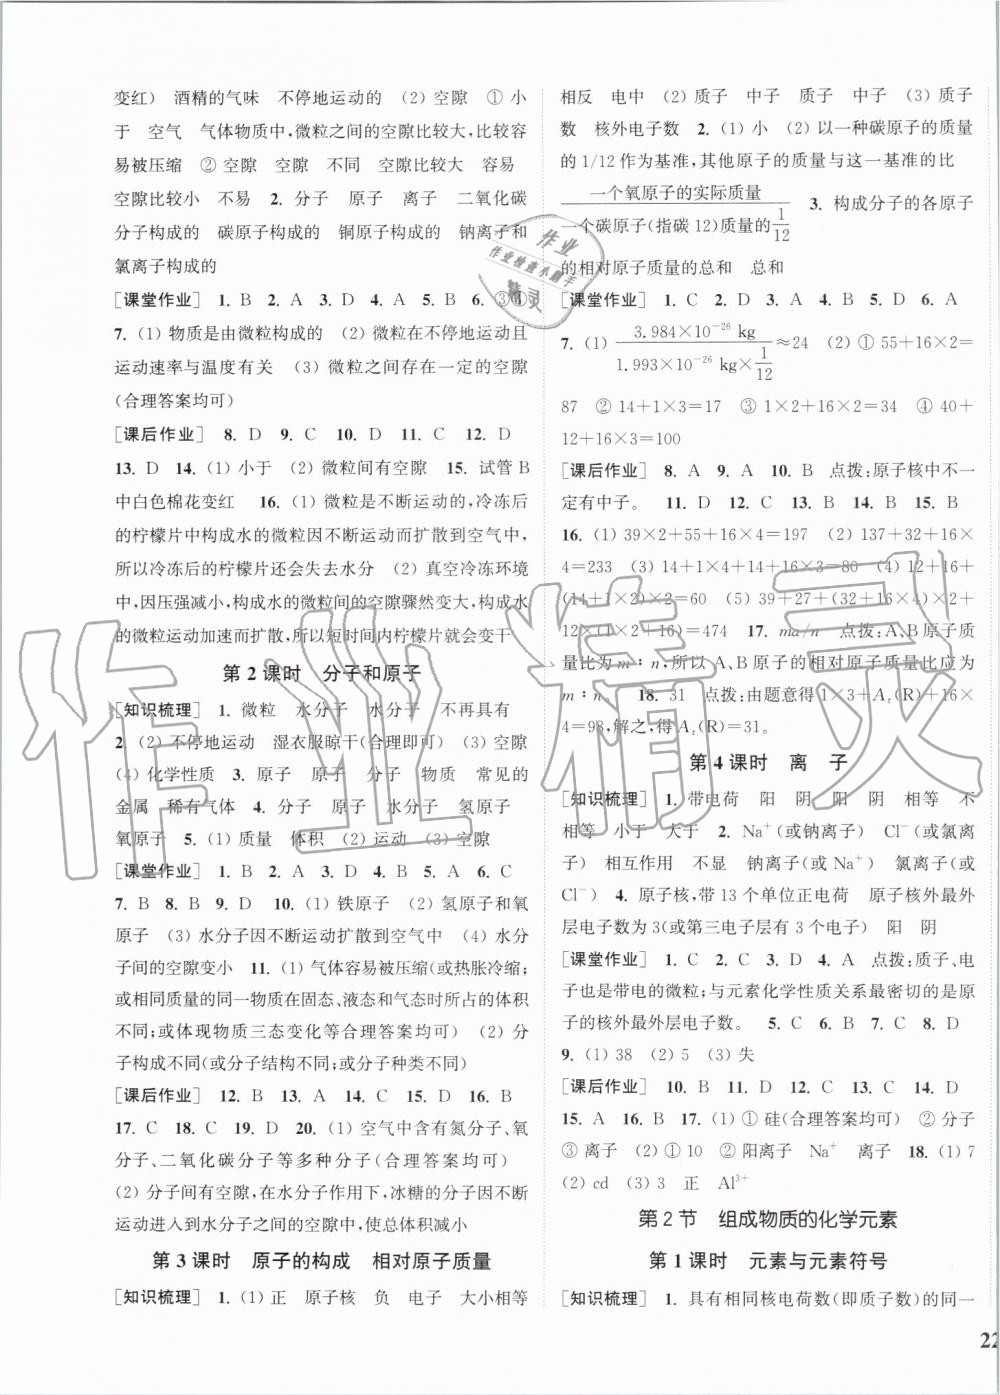 变红) 酒精的气味 不停地运动的 (2) 空隙 ① 小
于 空气 气体物质中,微粒之间的空隙比较大,比较容
易被压缩 ② 空隙 空隙 不同 空隙比较大 容易
空隙比较小 不易 2. 分子 原子 离子 二氧化碳
分子构成的 碳原子构成的 铜原子构成的 钠离子和
氯离子构成的
[课堂作业] 1. B 2. A 3. D 4. A 5. B 6. ③④
7. (1) 物质是由微粒构成的 (2) 微粒在不停地运动且
运动速率与温度有关 (3) 微粒之间存在一定的空隙
(合理答案均可)
[课后作业] 8. D 9. C 10. D 11. C 12. D
13. D 14. (1) 小于 (2) 微粒间有空隙 15. 试管 B
中白色棉花变红 16. (1) 微粒是不断运动的,冷冻后
的柠檬片中构成水的微粒因不断运动而扩散到空气中,
所以冷冻后的柠檬片还会失去水分 (2) 真空冷冻环境
中,因压强减小,构成水的微粒间的空隙骤然变大,构成水
的微粒运动加速而扩散,所以短时间内柠檬片就会变干
第 2 课时 分子和原子
[知识梳理] 1. 微粒 水分子 水分子 不再具有
2. (2) 不停地运动 湿衣服晾干(合理即可) (3) 空隙
(4) 化学性质 3. 原子 原子 分子 物质 常见的
金属 稀有气体 4. 分子 原子 水分子 氢原子
氧原子 5. (1) 质量 体积 (2) 运动 (3) 空隙
[课堂作业] 1. B 2. D 3. B 4. B 5. A 6. C
7. B 8. B 9. D 10. (1) 铁原子 (2) 氢原子和氧
原子 (3) 水分子因不断运动扩散到空气中 (4) 水分
子间的空隙变小 11. (1) 气体容易被压缩(或热胀冷缩;
或相同质量的同一物质在固态、液态和气态时所占的体积
不同;或体现物质三态变化等合理答案均可) (2) 分
子构成不同(或分子结构不同;或分子种类不同)
[课后作业] 12. B 13. A 14. C 15. D 16. B
17. C 18. C 19. D 20. (1) 空气中含有氮分子、氧分
子、二氧化碳分子等多种分子(合理答案均可)
(2) 分子间有空隙,在水分子作用下,冰糖的分子因不断
运动进入到水分子之间的空隙中,使总体积减小
第 3 课时 原子的构成 相对原子质量
[知识梳理] 1. (1) 正 原子核 负 电子 大小相等
相反 电中 (2) 质子 中子 质子 中子 (3) 质子
数 核外电子数 2. (1) 小 (2) 以一种碳原子的质量
的 1/12 作为基准,其他原子的质量与这一基准的比
一个氧原子的实际质量/一个碳原子(指碳 12)质量的1/12 3. 构成分子的各原子
的相对原子质量的总和 总和
[课堂作业] 1. C 2. D 3. A 4. B 5. D 6. A
7. (1) 3.984×10⁻²⁶ kg/(1.993×10⁻²⁶ kg×1/12)≈24 (2) ① 55+16×2=
87 ② 14+1×3=17 ③ 1×2+16×2=34 ④ 40+
12+16×3=100
[课后作业] 8. A 9. A 10. B 点拨:原子核中不一
定有中子。 11. D 12. C 13. B 14. B 15. B
16. (1) 39×2+55+16×4=197 (2) 137+32+16×
4=233 (3) 14+1×4+14+16×3=80 (4) 12+16+
(14+1×2)×2=60 (5) 27×2+(32+16×4)×3+
12×(1×2+16)=474 17. ma/n 点拨:A、B原子质
量比为 m∶n,所以 A、B 原子的相对原子质量比应为
m∶n。 18. 31 点拨:由题意得 1×3+Aᵣ(R)+16×
4=98,解之,得 Aᵣ(R)=31。
第 4 课时 离 子
[知识梳理] 1. 带电荷 阳 阴 阳 阴 相等 不
相等 小于 大于 2. Na⁺(或钠离子) Cl⁻(或氯离
子) 相互作用 不显 钠离子(或 Na⁺) 氯离子(或
Cl⁻) 4. 原子核,带 13 个单位正电荷 原子核外最外
层电子数为 3(或第三电子层有 3 个电子) 阳 阴
[课堂作业] 1. C 2. C 3. D 4. A 点拨:质子、电
子也是带电的微粒;与元素化学性质关系最密切的是原
子的核外最外层电子数。 5. C 6. C 7. C 8. D
9. (1) 38 (2) 5 (3) 失
[课后作业] 10. B 11. D 12. C 13. C 14. D
15. A 16. B 17. (1) ① 硅(合理答案均可) ② 分子
③ 离子 (2) ① 10 ② 阳离子 Na⁺ 离子 18. (1) 7
(2) cd (3) 3 正 Al³⁺
第 2 节 组成物质的化学元素
第 1 课时 元素与元素符号
[知识梳理] 1. 具有相同核电荷数(即质子数)的同一
22
作业
作业检查小助手
精灵
作业精灵